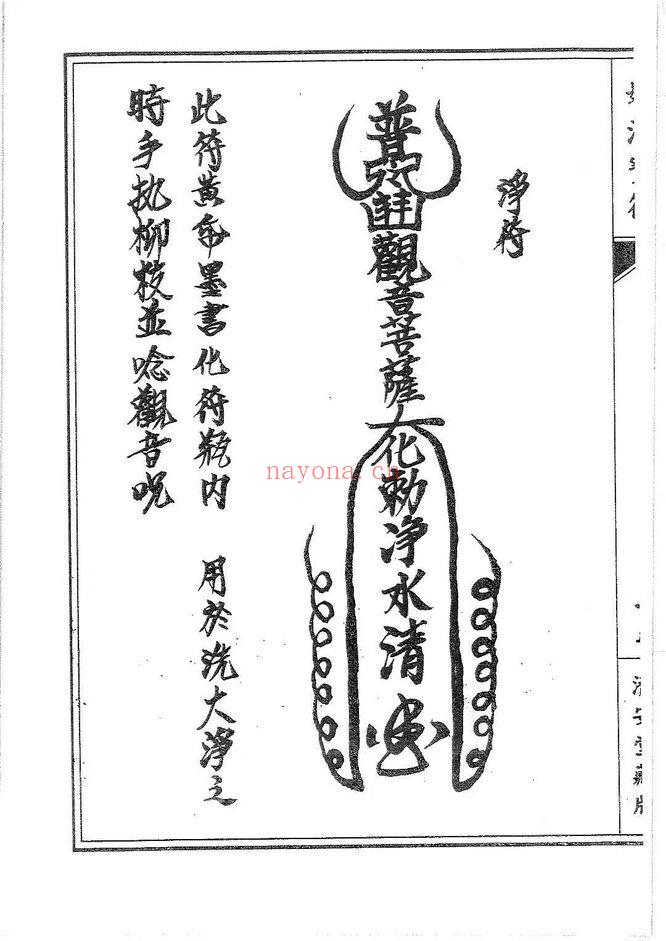 淨符
普
觀音菩薩
化勅淨水清
此符黃帋墨書化符瓶内 用於洗大淨之
時手执柳枝並唸觀音咒
nayona.cn